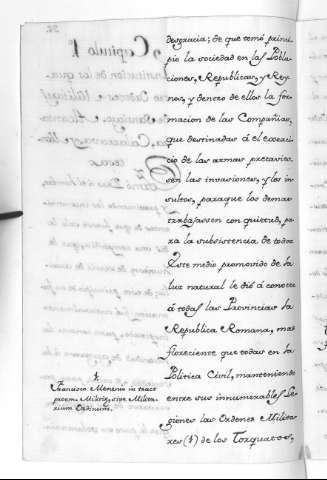 desgracia; de que tomó princi-
pio la sociedad en las Pobla-
ciones, Republicas, y Rey-
nos, y dentro de ellos la for-
macion de las Compañias,
que destinadas á el exerci-
cio de las armas precavie-
sen las invasiones, y los in-
sultos, paraque los demas
trabajassen con quietud, pa-
ra la subsistencia de todos
Este medio promovido de la
luz natural le dió á conocer
á todas las Provincias la
Republica Romana, mas
floreciente que todas en la
Politica Civil, manteniendo
entre sus innumerables Le-
giones las Ordenes Milita-
res (§) de los Torquatos,
§
Francisco Menenio in tract
proem. Militiæ, sive Milita-
rium Ordinum.